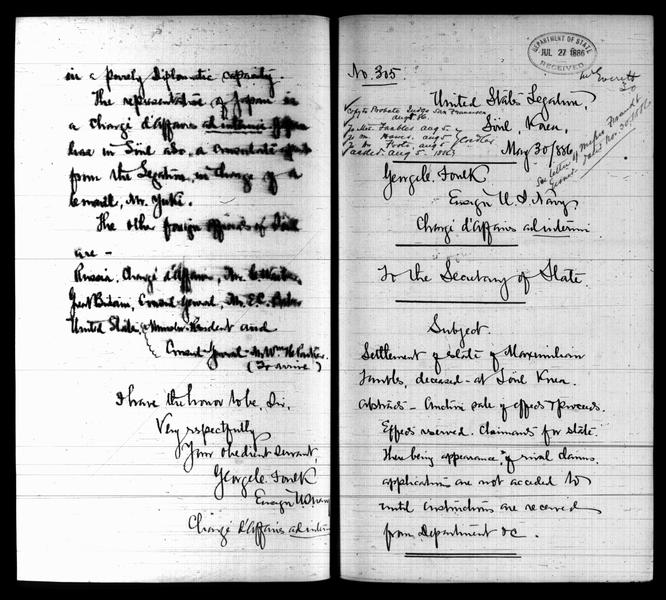 in a purely diplomatic capacity.
The representative of Japan is
a Chargé d'Affaires ad interim
here in Söul also, a consulate apart
from the Legation, in charge of a
consul, Mr.
The other foreign officials of Söul
are -
Russia, Chargé d'Affaires, Mr. C. Waeber,
Great Britain, Consul General, Mr. E.C. Baber
United States, Minister Resident and
Consul General Mr. Wm H. Parker.
(To arrive)
I have the honor to be, Sir,
Very respectfully
Your obedient servant,
George C. Foulk
Ensign U.S. Navy
Chargé d'Affaires ad interim
DEPARTMENT OF STATE
JUL 27 1886
RECEIVED
Mr Everett
No. 305
United States Legation,
Söul, Korea,
May 30/886.
Copy to Probate Judge San Francisco
Aug 5
aug 5
aug 5
aug. 5. 1886
See letter of
dated Nov. 30/1886
George C. Foulk
Ensign U S Navy
Chargé d'Affaires ad interim
To the Secretary of State.
Subject.
Settlement of estate of Maximilian
Taubles, deceased - at Söul Korea.
Abstract - Auction sale of effects & proceeds.
Effects reserved. Claimants for estate.
There being appearance of rival claims
application are not acceded to
until instructions are received
from Department &c.